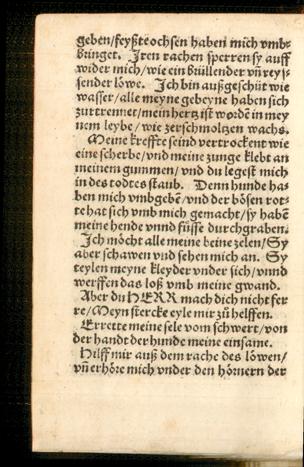 geben/feyßte ochsen haben mich vmb-
bringet. Jren rachen sperren sy auff
wider mich/wie ein brüllender vn̄ reys-
sender löwe. Jch bin außgeschüt wie
wasser/alle meyne gebeyne haben sich
zurtrennet/mein hertz ist wordē in mey
nem leybe/wie zerschmoltzen wachs.
Meine kreffte seind vertrocknet wie
eine scherbe/vnd meine zunge klebt an
meinem gummen/vnd du legest mich
in des todtes staub. Denn hunde ha-
ben mich vmbgebē/vnd der bösen rot-
te hat sich vmb mich gemacht/sy habē
meine hende vnnd füsse durchgraben.
Jch möcht alle meine beine zelen/Sy
aber schawen vnd sehen mich an. Sy
teylen meyne kleyder vnder sich/vnnd
werffen das loß vmb meine gwand.
Aber du HERR mach dich nicht fer
re/Meyn stercke eyle mir zů helffen.
Errette meine sele vom schwert/von
der handt der hunde meine einsame.
Hilff mir auß dem rache des löwen/
vn̄ erhöre mich vnder den hörnern der